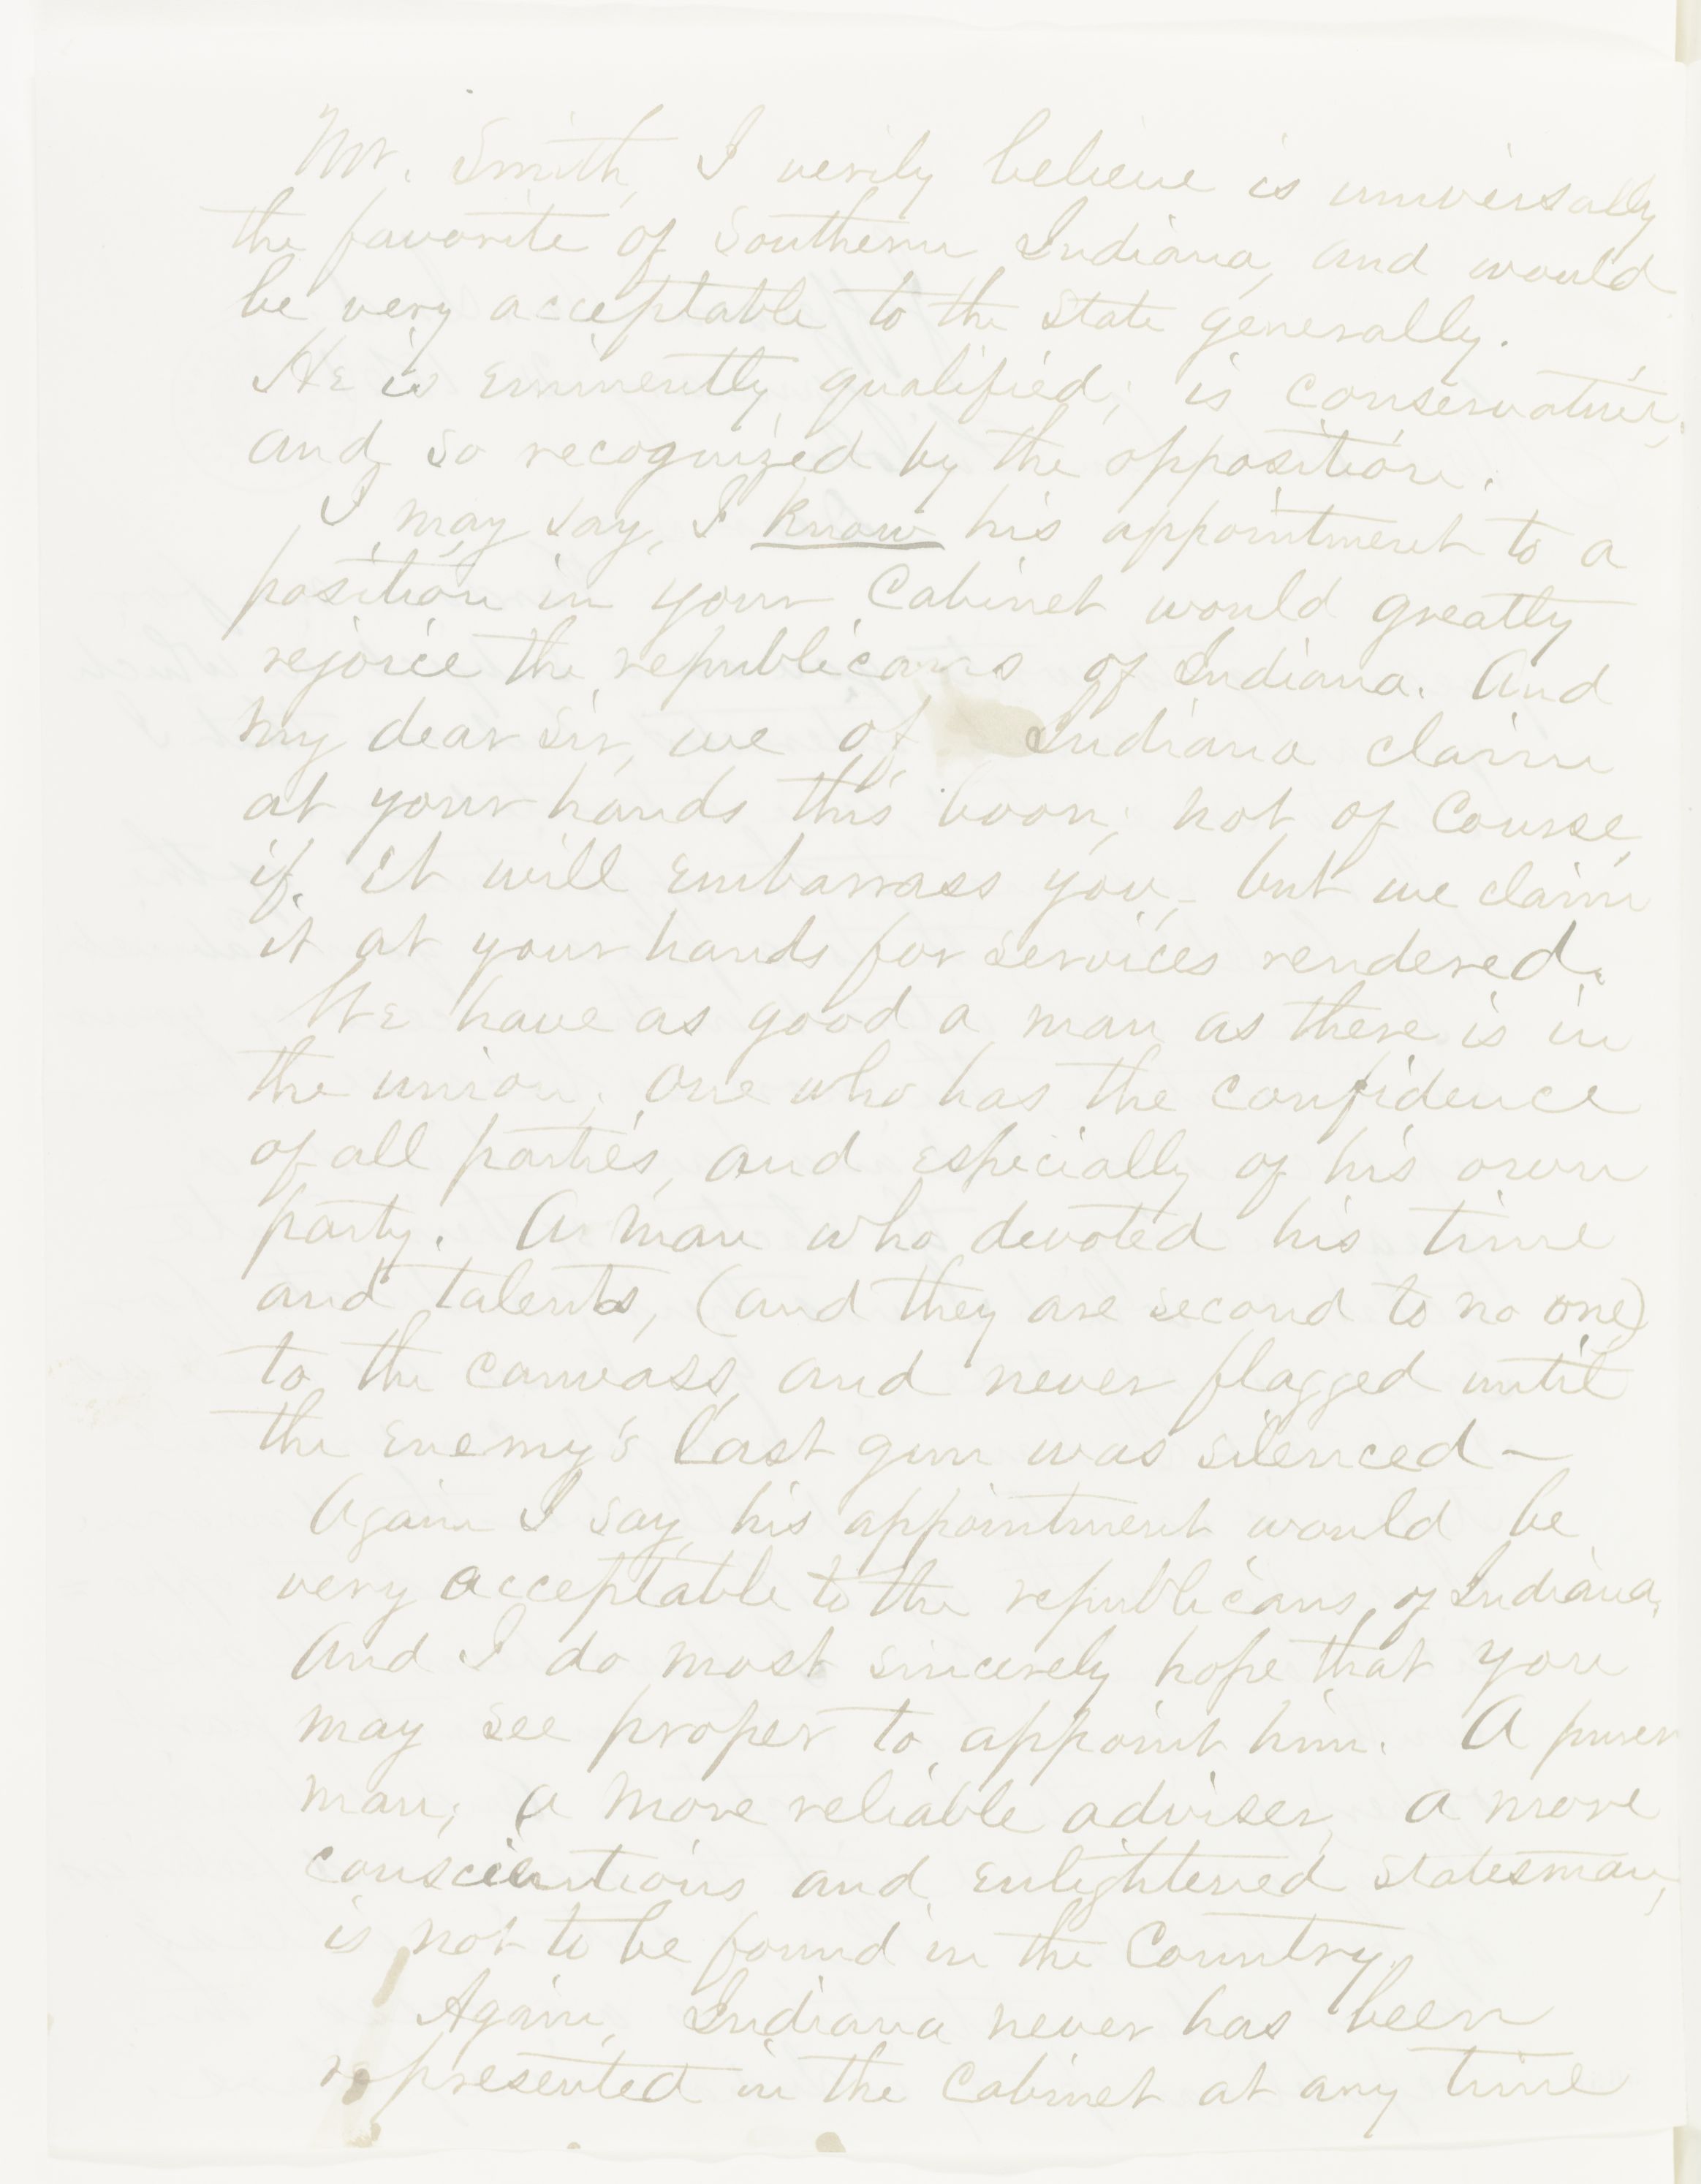 Mr. Smith, I verily believe is universally
the favorite of Southern Indiana, and would
be very acceptable to the State generally.
He is eminently qualified; is conservative,
and so recognized by the opposition.
I may say, I know his appointment to a
position in your Cabinet would greatly
rejoice the republicans of Indiana. And
my dear sir, we of Indiana claim
at your hands this boon; not of Course,
if it will embarrass you,- but we claim
it at your hands for services rendered.
We have as good a man as there is in
the union; one who has the confidence
of all parties, and especially of his own
party. A man who devoted his time
and talents, (and they are second to no one)
to the canvass, and never flagged until
the enemy's last gun was silenced -
Again I say, his appointment would be
very acceptable to the republicans of Indiana.
And I do most sincerely hope that you
may see proper to appoint him. A purer
man; a more reliable adviser, a more
conscientious and enlightened statesman,
is not to be found in the Country.
Again, Indiana never has been
represented in the Cabinet at any time